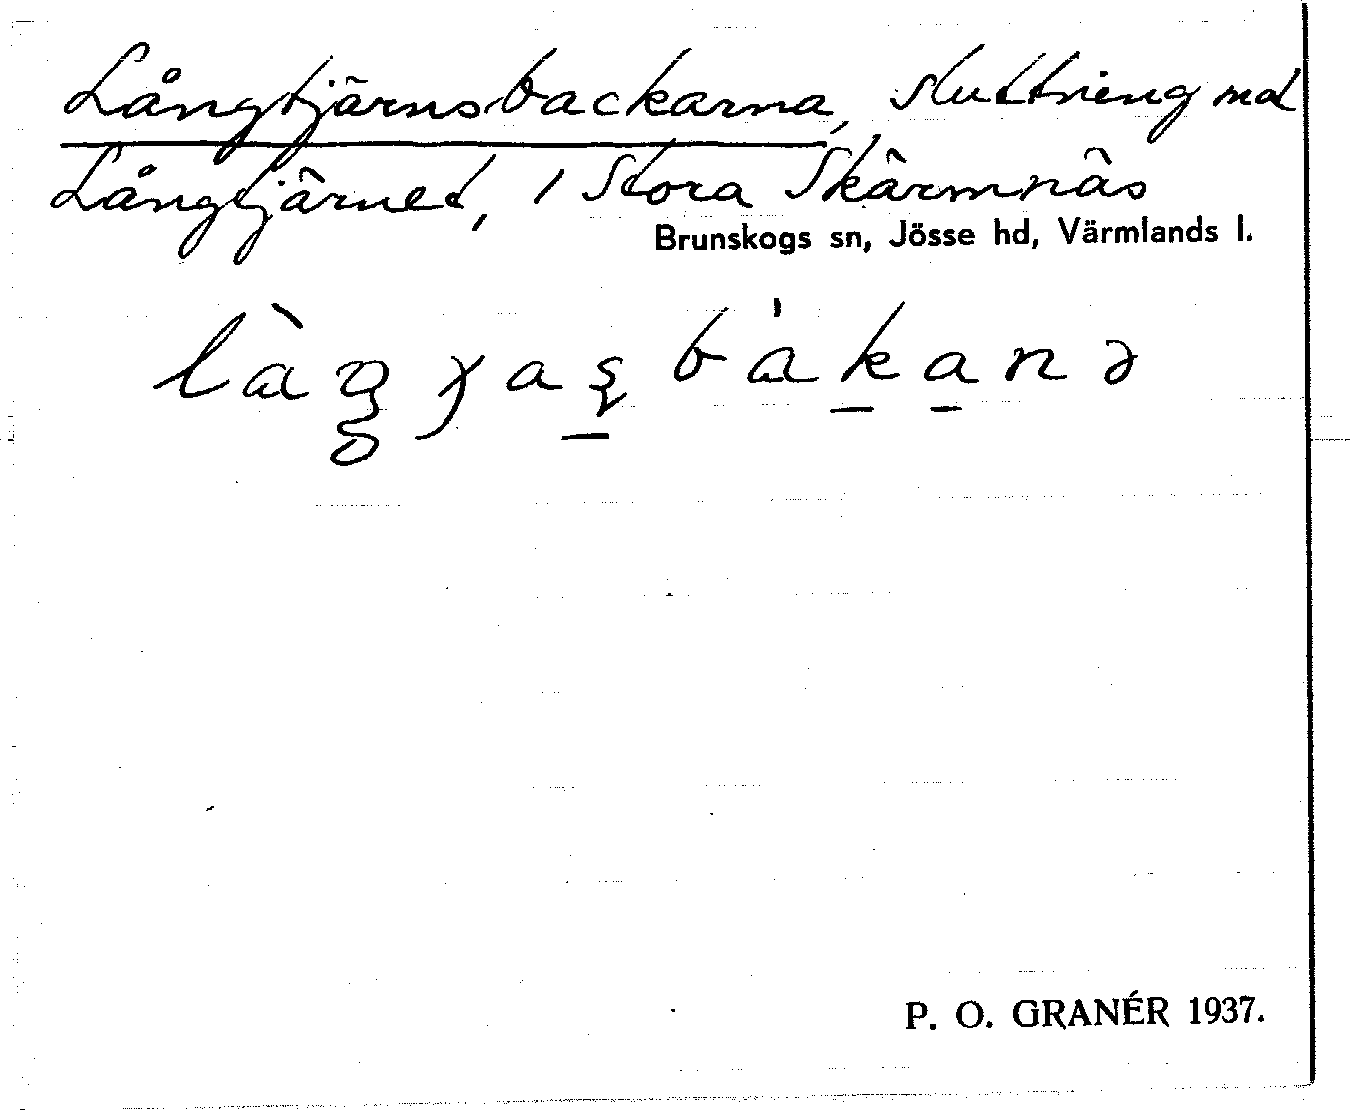 Långtjärnsbackarna, sluttning mot
Långtjärnet, i Stora Skärmnäs
Brunskogs sn, Jösse hd, Värmlands l.
P. O. GRANÉR 1937.